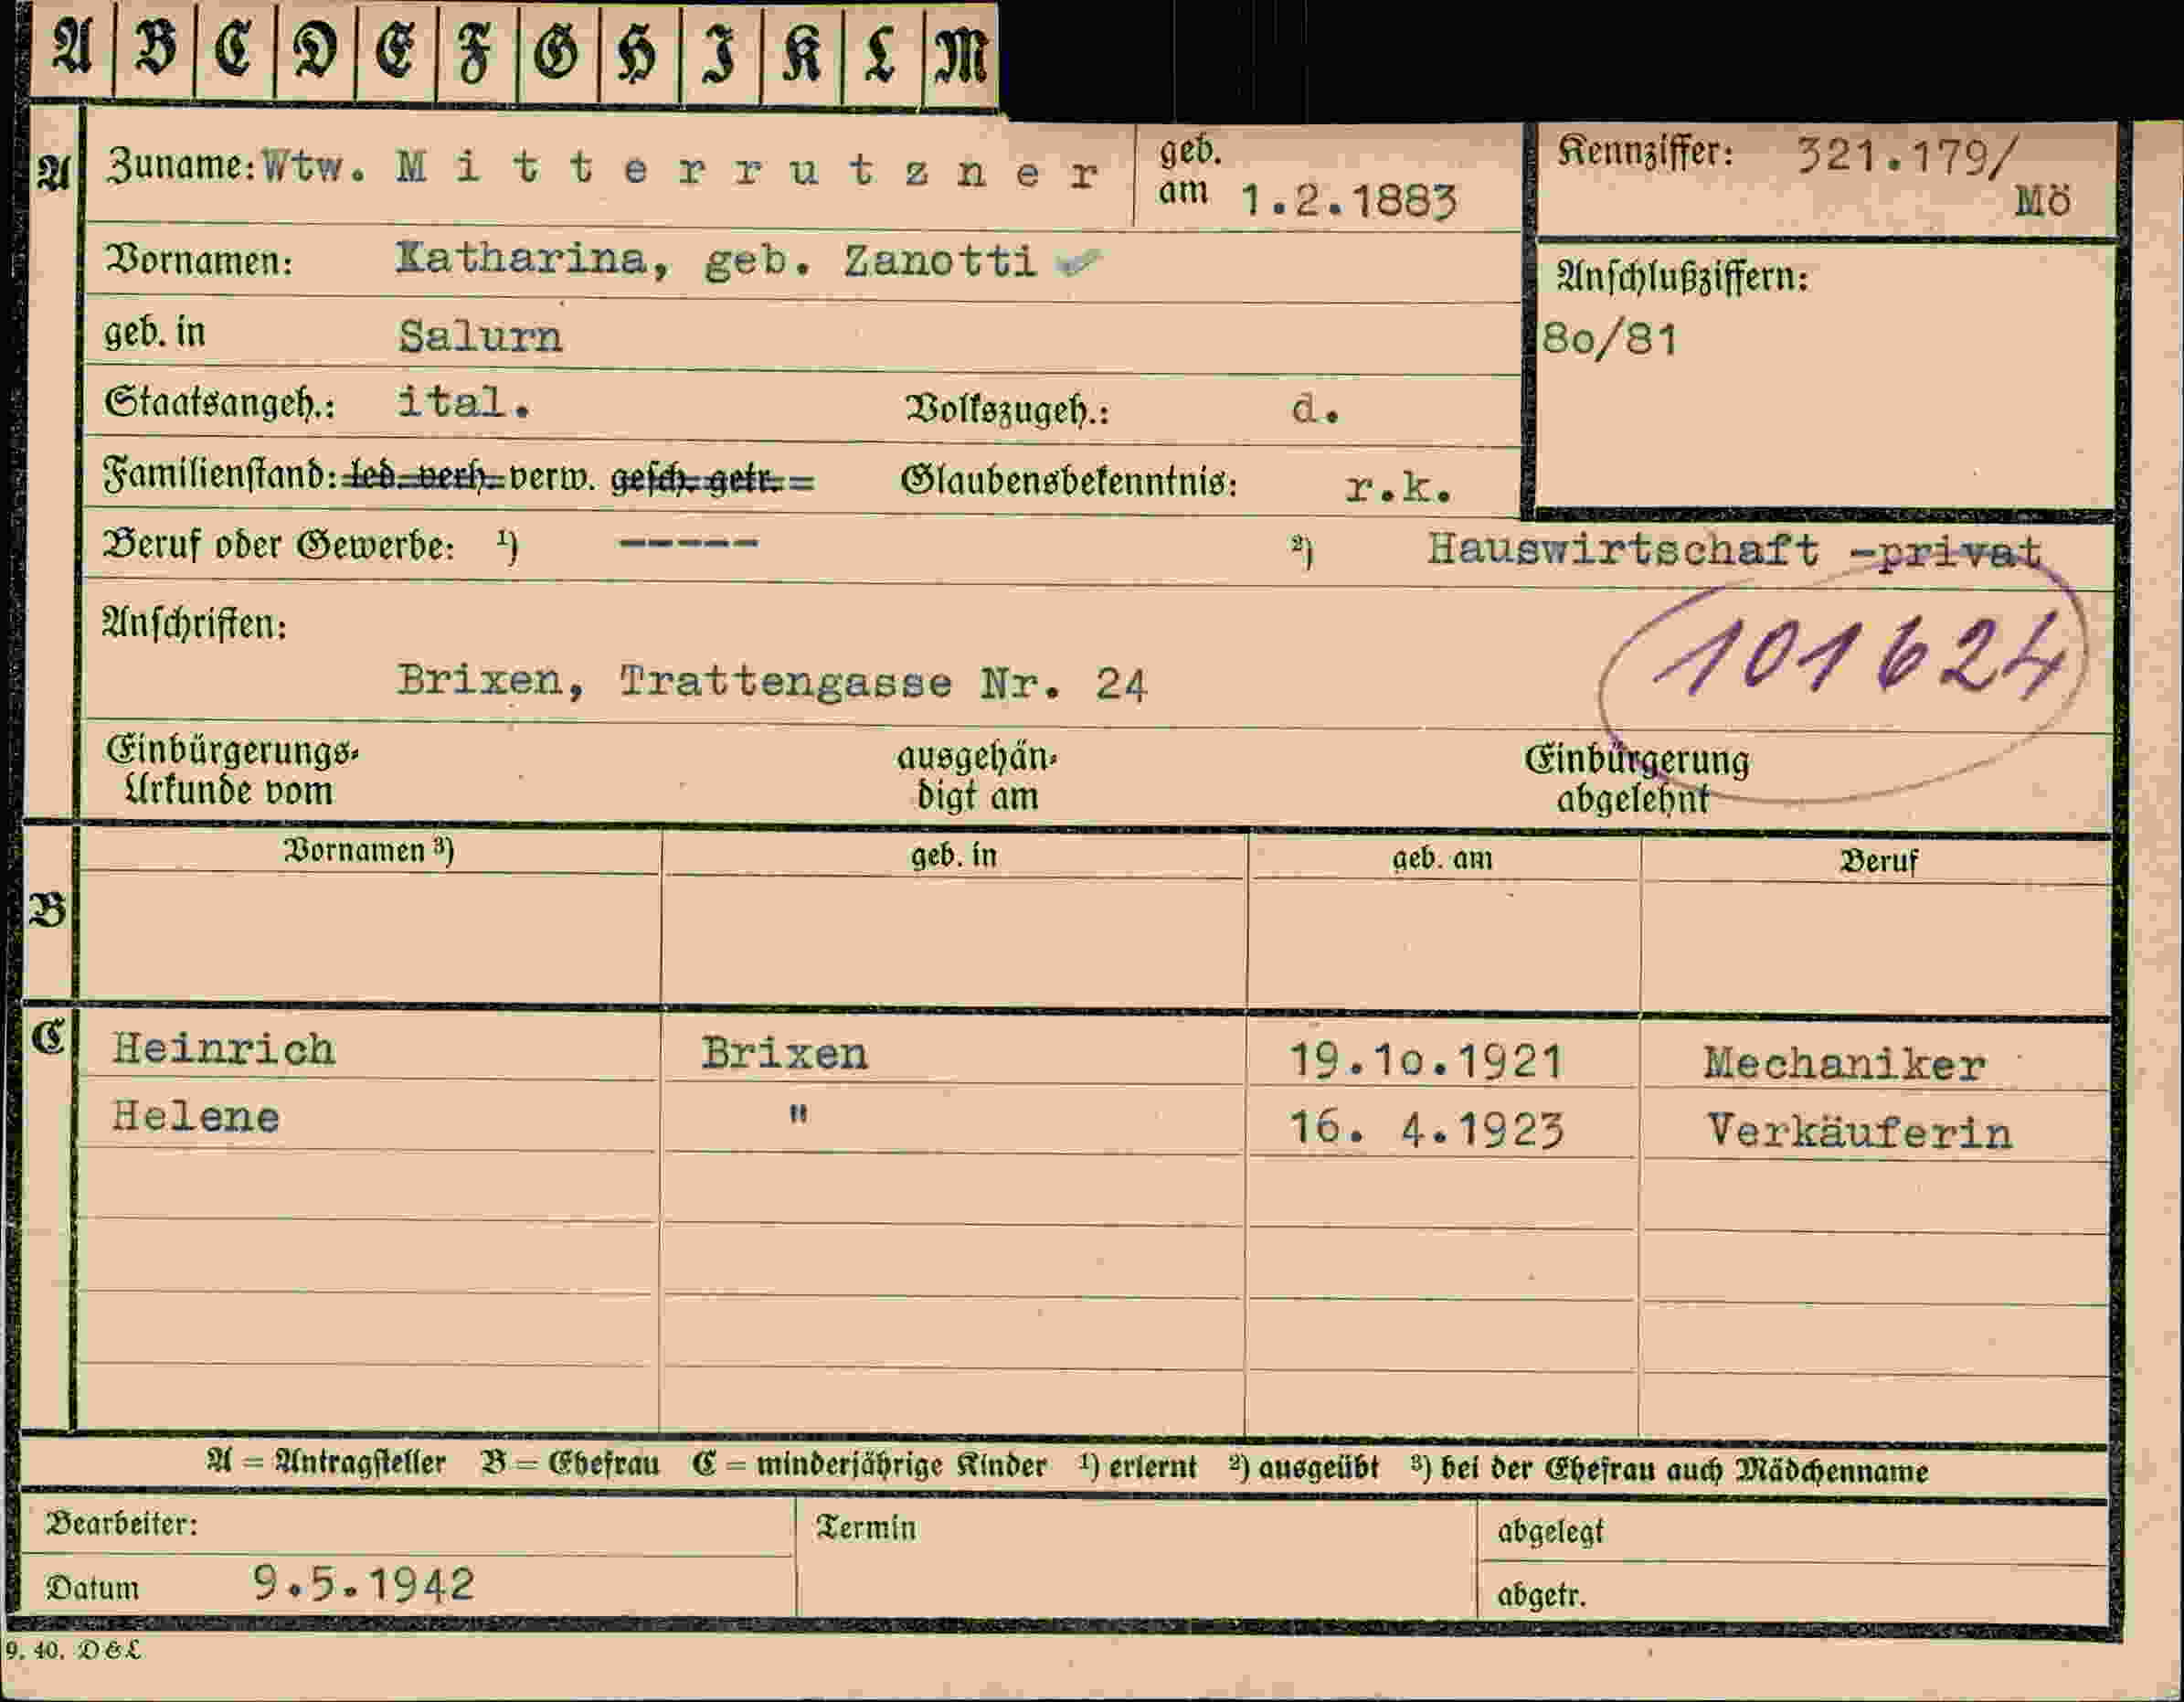 A B C D E F G H I K L M
A Zuname: Wtw. Mitterrutzner geb. am 1.2.1883
Kennziffer: 321.179/
Mö
Vornamen: Katharina, geb. Zanotti
Anschlußziffern:
80/81
geb. in Salurn
Staatsangeh.: ital. Volkszugeh.: d.
Familienstand: led. verh. verw. gesch. getr. = Glaubensbekenntnis: r.k.
Beruf oder Gewerbe: 1) ----- 2) Hauswirtschaft -privat
Anschriften:
101624
Brixen, Trattengasse Nr. 24
Einbürgerungs- ausgehän- Einbürgerung
Urkunde vom digt am abgelehnt
Vornamen 3) geb. in geb. am Beruf
B
C Heinrich Brixen 19.10.1921 Mechaniker
Helene " 16. 4.1923 Verkäuferin
A = Antragsteller B = Ehefrau C = minderjährige Kinder 1) erlernt 2) ausgeübt 3) bei der Ehefrau auch Mädchenname
Bearbeiter: Termin abgelegt
Datum 9.5.1942 abgetr.
9. 40. D&L